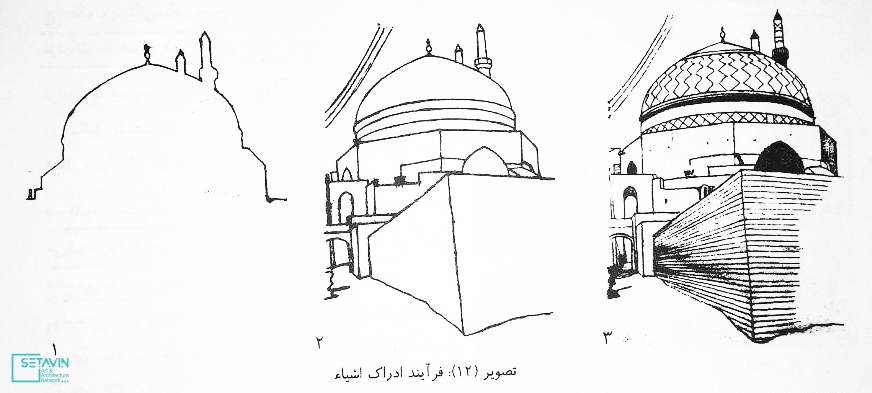 ۱
۲
۳
تصویر (۱۲): فرآیند ادراک اشیاء
SETAVIN
Art &
Architecture
Network...